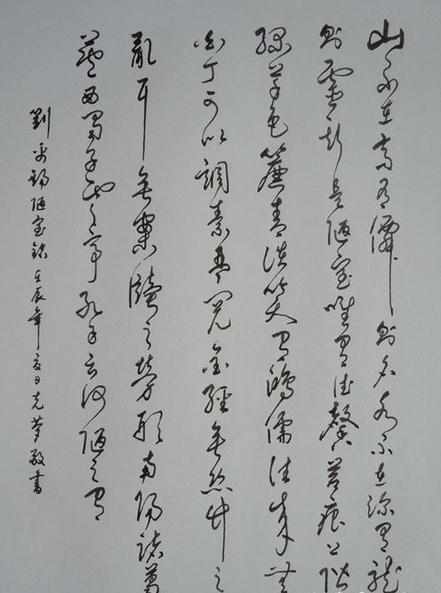 山不在高有僊則名水不在深有龍
則靈斯是陋室唯有德馨苔痕上階
綠草色簾青談笑有鴻儒往來無
白丁可以調素琴閱金經無絲竹之
亂耳無案牘之勞形南陽諸葛
廬西蜀子雲亭孔子云何陋之有
劉禹錫陋室銘壬辰年夏日克夢敬書